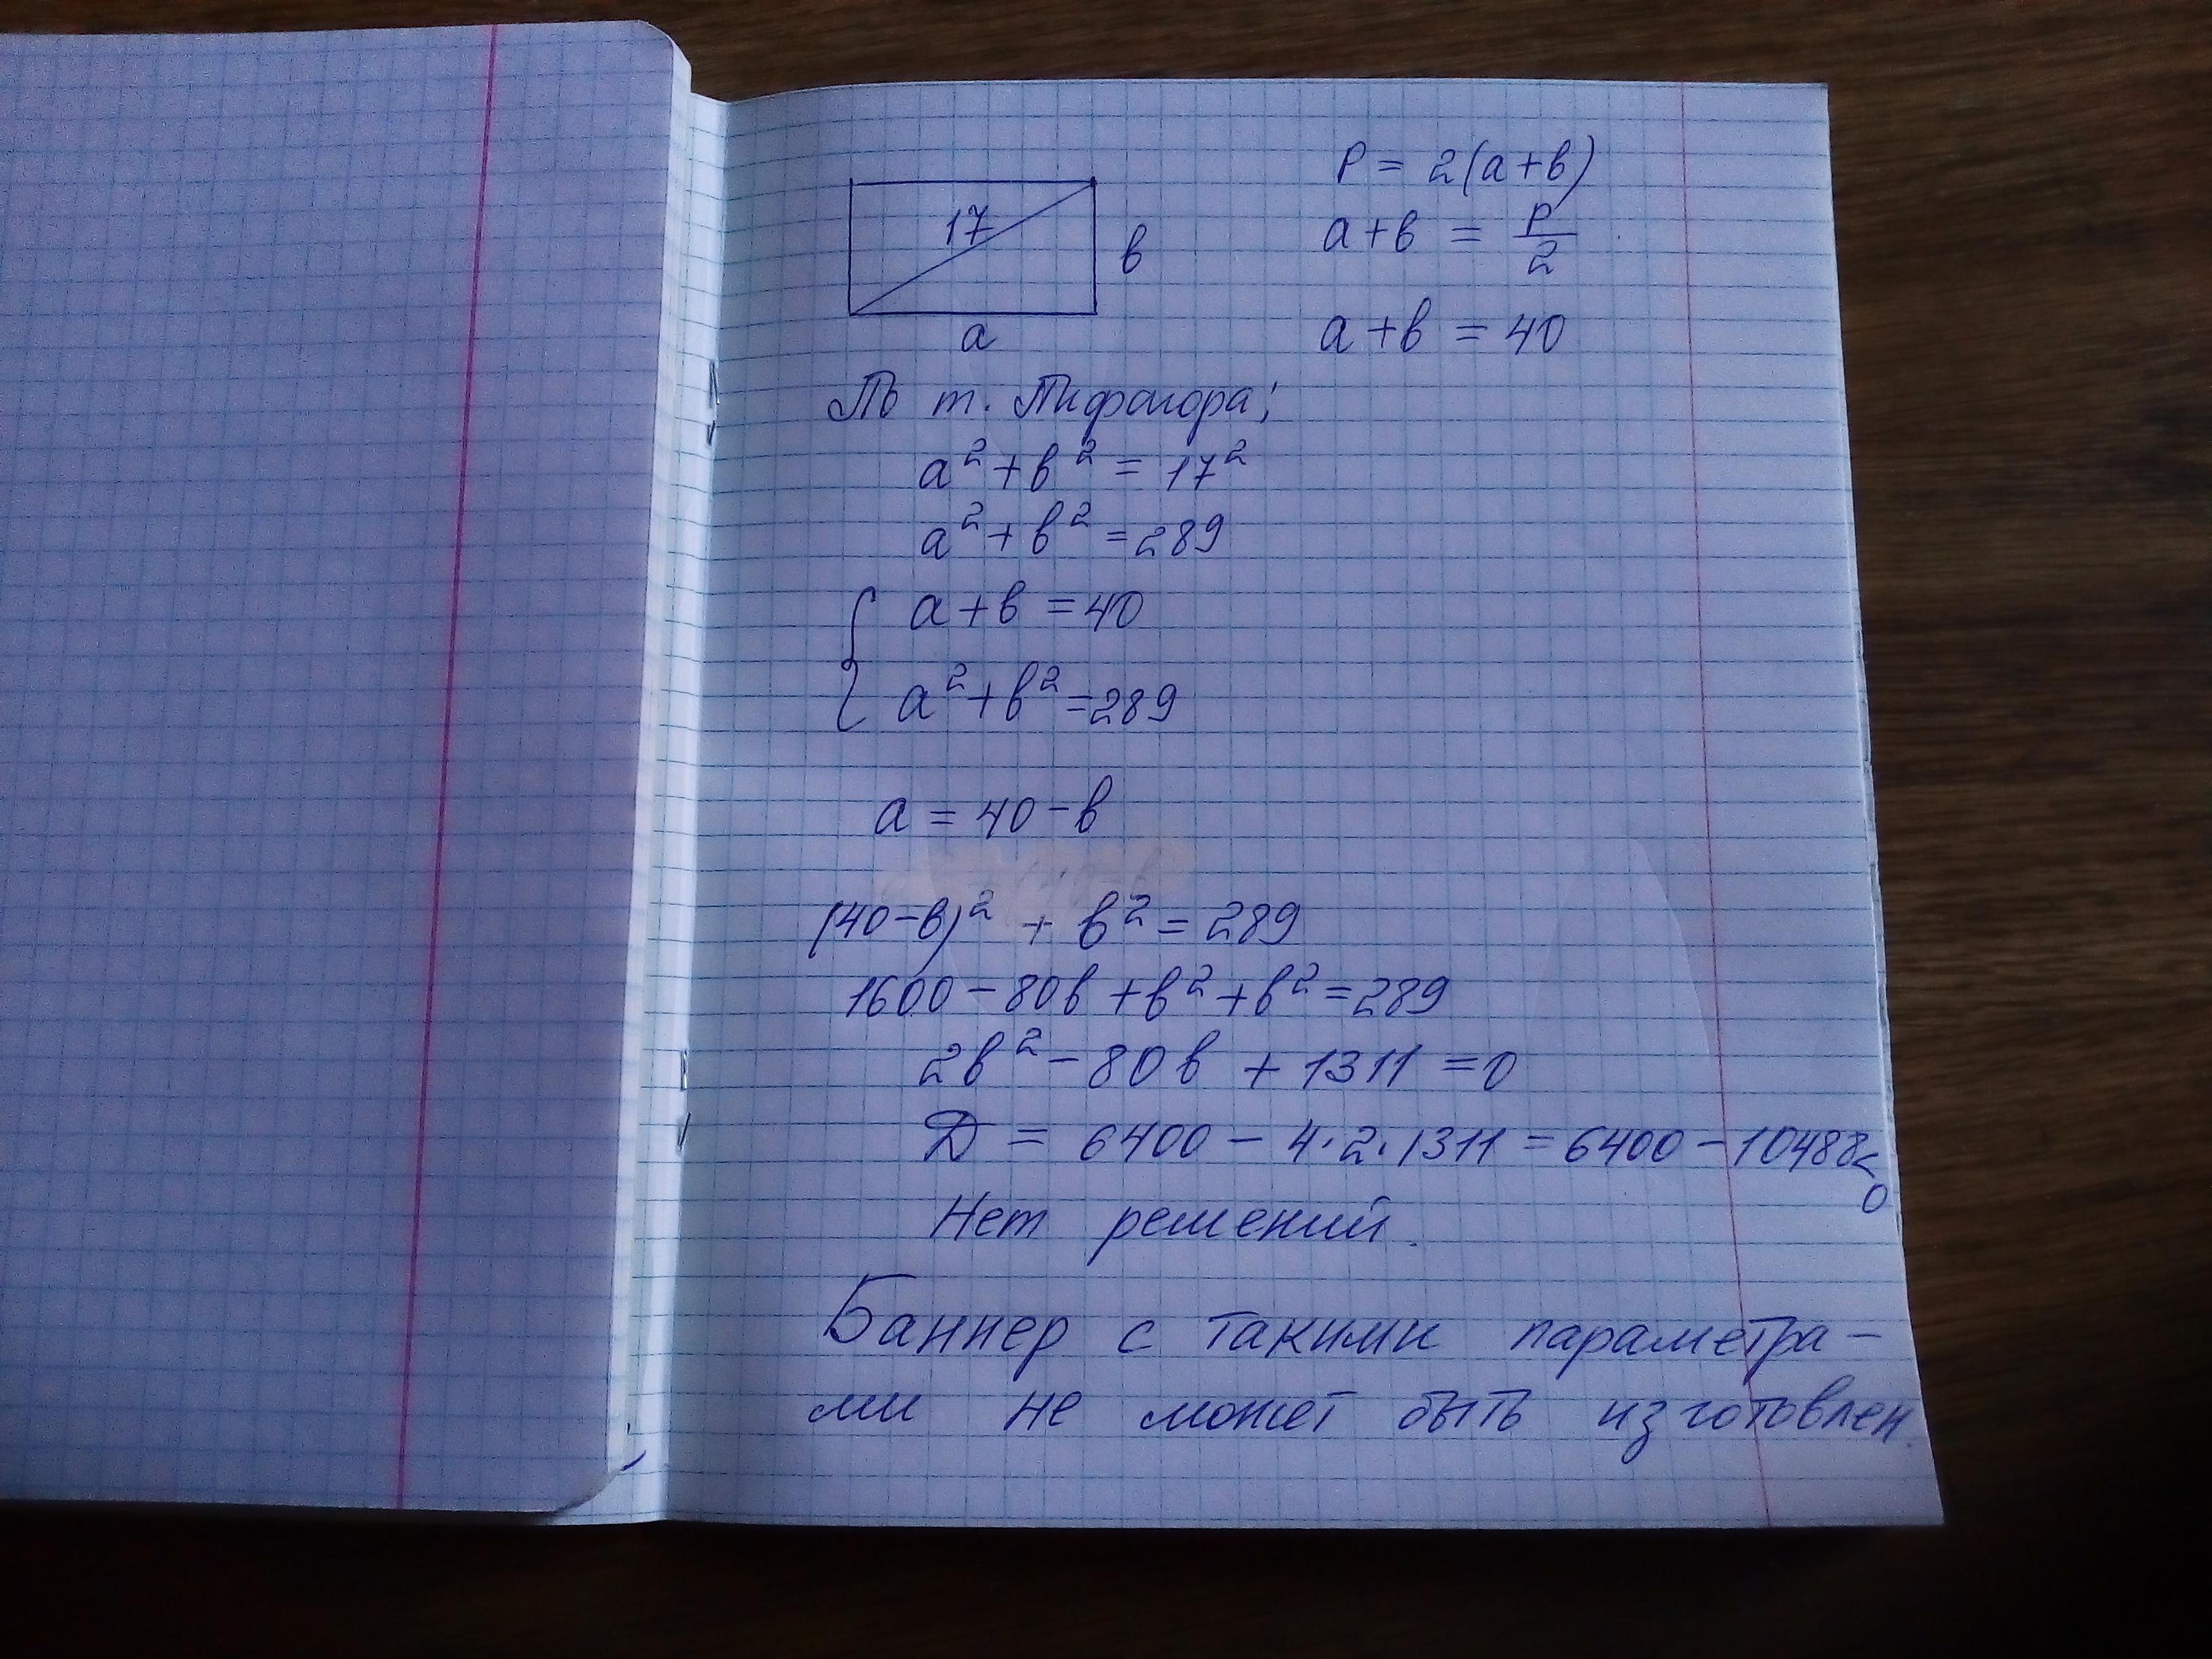 17
в
a
P = 2(a+в)
a+в = P/2
a+в = 40
По т. Пифагора:
a²+в² = 17²
a²+в² =289
{ a+в =40
a²+в²=289
a = 40-в
(40-в)² + в² = 289
1600-80в+в²+в²=289
2в²-80в + 1311 =0
Д = 6400 - 4·2·1311 = 6400 -10488<0
Нет решений.
Баннер с такими параметра-
ми не может быть изготовлен.